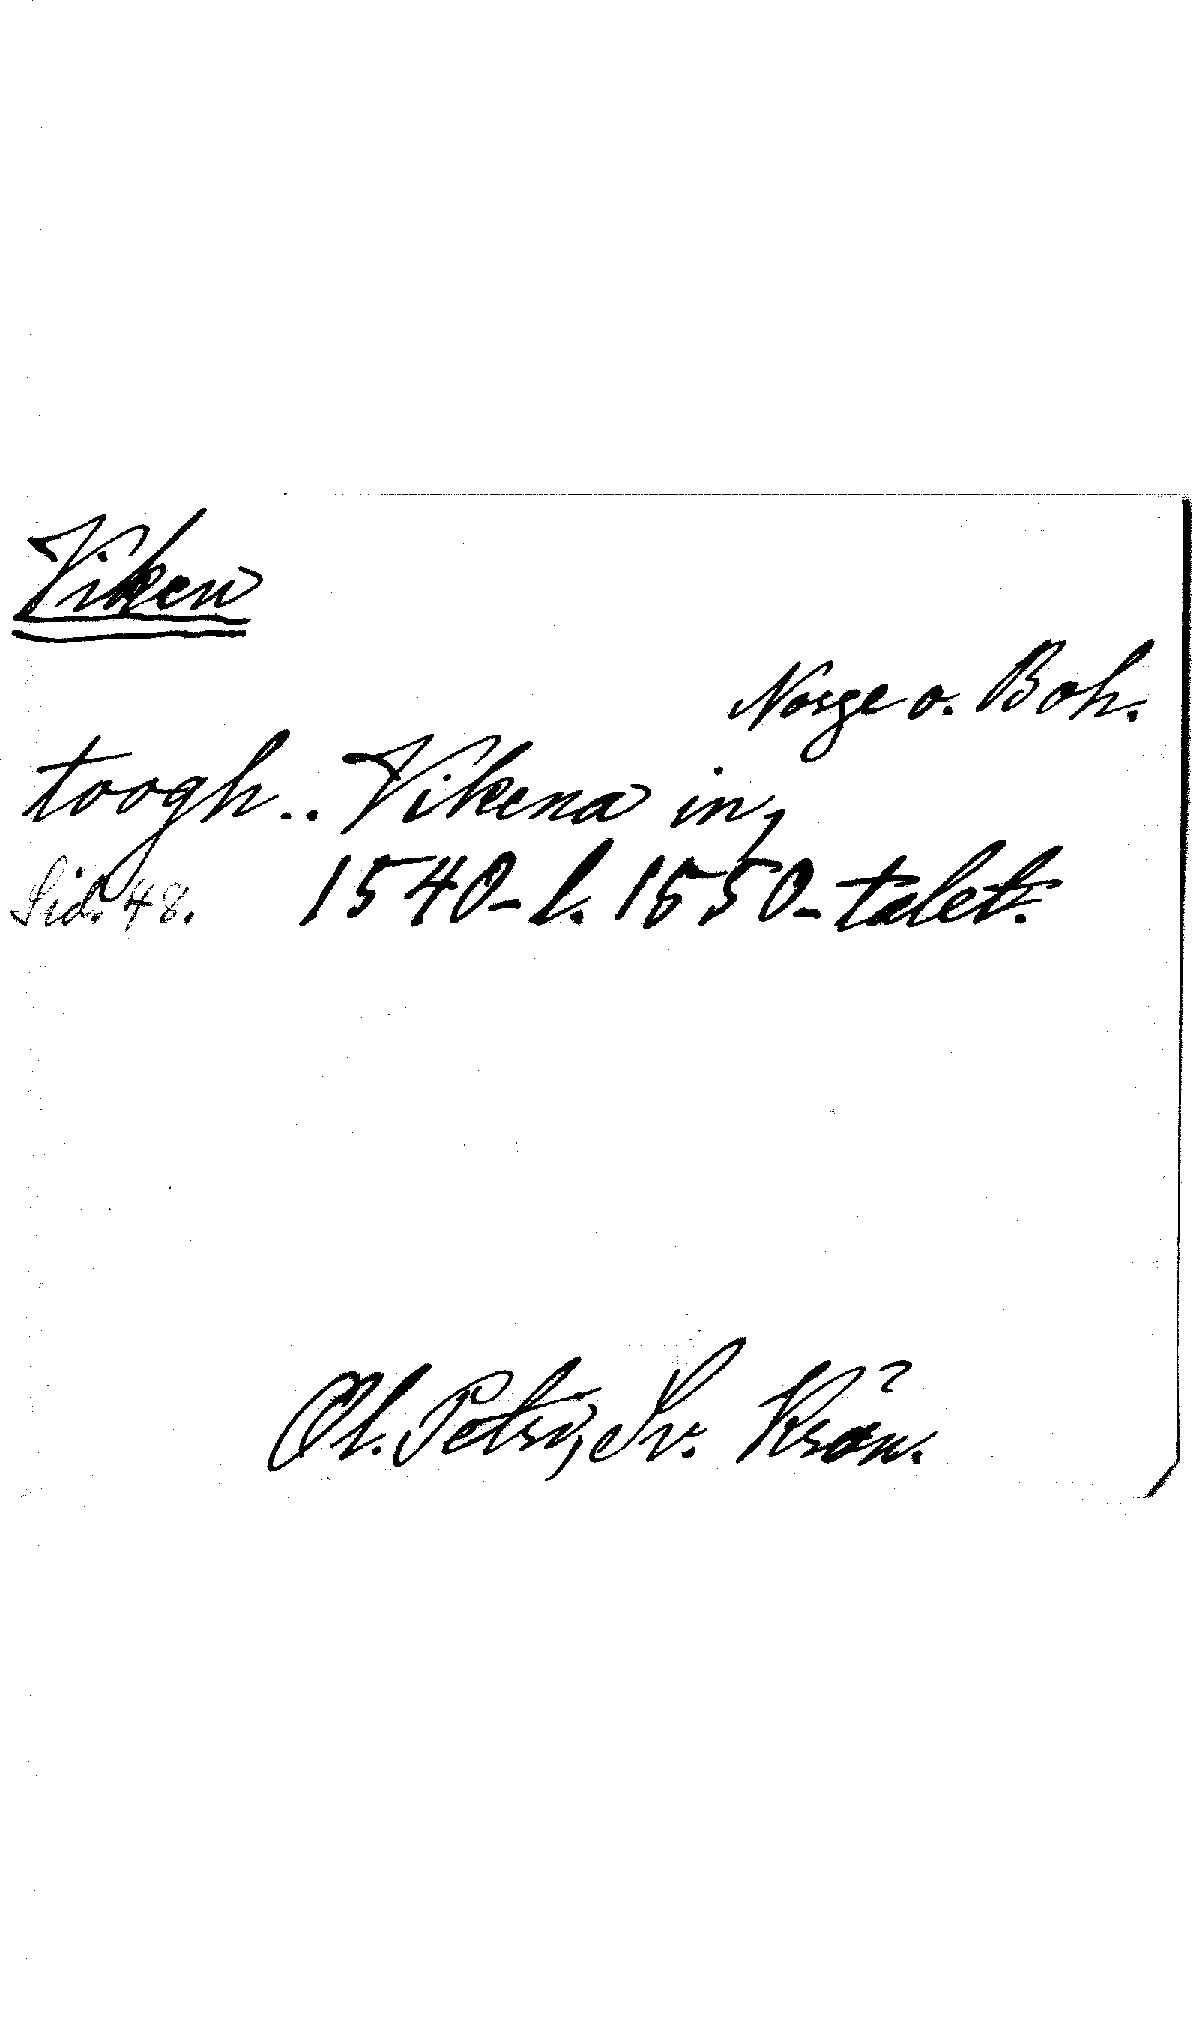 Viken
Norge o. Boh.
toogh.. Vikena in,
Sid. 48. 1540- l. 1550-talet.
Ol. Petri, Sv. Krön.